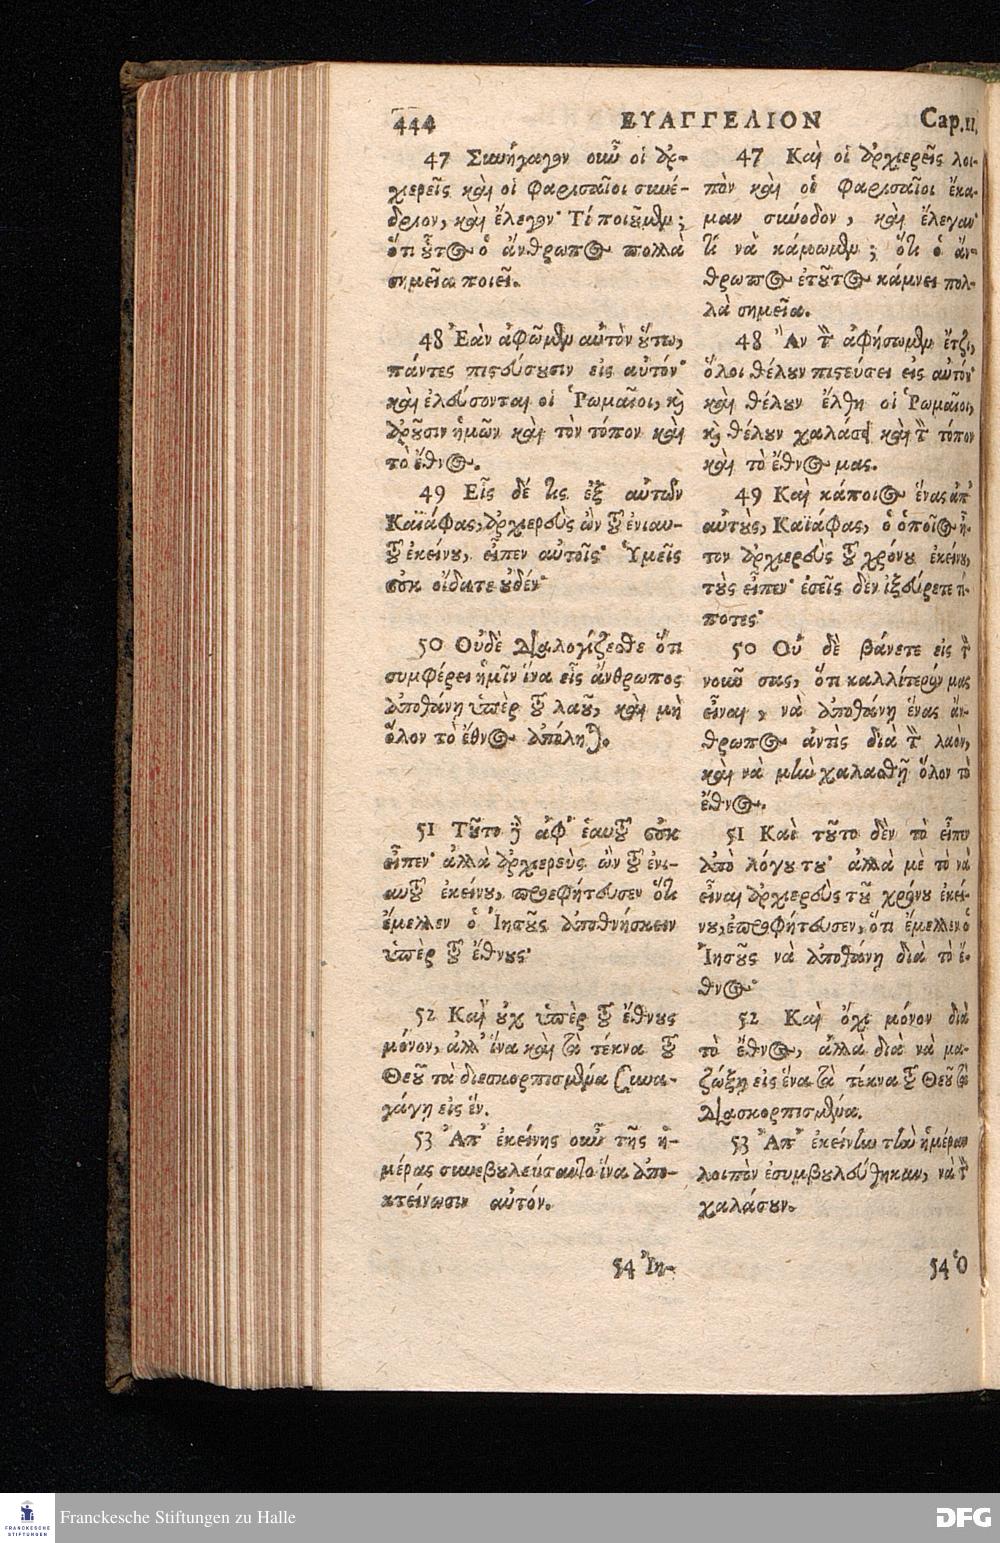 444 ΕΥΑΓΓΕΛΙΟΝ Cap. 11.
47 Συνήγαγον οὖν οἱ ἀρ-
χιερεῖς καὶ οἱ Φαρισαῖοι συνέ-
δριον, καὶ ἔλεγον· Τί ποιοῦμεν;
ὅτι οὗτος ὁ ἄνθρωπος πολλὰ
σημεῖα ποιεῖ.
48 Ἐὰν ἀφῶμεν αὐτὸν οὕτω,
πάντες πιστεύσουσιν εἰς αὐτόν·
καὶ ἐλεύσονται οἱ Ῥωμαῖοι, καὶ
ἀροῦσιν ἡμῶν καὶ τὸν τόπον καὶ
τὸ ἔθνος.
49 Εἷς δέ τις ἐξ αὐτῶν
Καϊάφας, ἀρχιερεὺς ὢν τοῦ ἐνιαυ-
τοῦ ἐκείνου, εἶπεν αὐτοῖς· Ὑμεῖς
οὐκ οἴδατε οὐδέν·
50 Οὐδὲ διαλογίζεσθε ὅτι
συμφέρει ἡμῖν ἵνα εἷς ἄνθρωπος
ἀποθάνῃ ὑπὲρ τοῦ λαοῦ, καὶ μὴ
ὅλον τὸ ἔθνος ἀπόληται.
51 Τοῦτο δὲ ἀφ' ἑαυτοῦ οὐκ
εἶπεν· ἀλλὰ ἀρχιερεὺς ὢν τοῦ ἐνι-
αυτοῦ ἐκείνου, προεφήτευσεν ὅτι
ἔμελλεν ὁ Ἰησοῦς ἀποθνήσκειν
ὑπὲρ τοῦ ἔθνους·
52 Καὶ οὐχ ὑπὲρ τοῦ ἔθνους
μόνον, ἀλλ' ἵνα καὶ τὰ τέκνα τοῦ
Θεοῦ τὰ διεσκορπισμένα συνα-
γάγῃ εἰς ἕν.
53 Ἀπ' ἐκείνης οὖν τῆς ἡ-
μέρας συνεβουλεύσαντο ἵνα ἀπο-
κτείνωσιν αὐτόν.
54 Ἰη-
47 Καὶ οἱ ἀρχιερεῖς λοι-
πὸν καὶ οἱ Φαρισαῖοι ἔκα-
μαν σύνοδον, καὶ ἔλεγαν·
τί νὰ κάμωμεν; ὅτι ὁ ἄν-
θρωπος ἐτοῦτος κάμνει πολ-
λὰ σημεῖα.
48 Ἂν τὸν ἀφήσωμεν ἔτζι,
ὅλοι θέλουν πιστεύσει εἰς αὐτόν·
καὶ θέλουν ἔλθῃ οἱ Ῥωμαῖοι,
καὶ θέλουν χαλάσει καὶ τὸν τόπον
καὶ τὸ ἔθνος μας.
49 Καὶ κάποιος ἕνας ἀπ'
αὐτοὺς, Καϊάφας, ὁ ὁποῖος ἦ-
τον ἀρχιερεὺς τοῦ χρόνου ἐκείνου,
τοὺς εἶπεν· ἐσεῖς δὲν ἰξεύρετε τί-
ποτες·
50 Οὐ δὲ βάνετε εἰς τὸν
νοῦν σας, ὅτι καλλίτερόν μας
εἶναι, νὰ ἀποθάνῃ ἕνας ἄν-
θρωπος ἀντὶς διὰ τὸν λαὸν,
καὶ νὰ μὴν χαλασθῇ ὅλον τὸ
ἔθνος.
51 Καὶ τοῦτο δὲν τὸ εἶπεν
ἀπὸ λόγου του· ἀλλὰ μὲ τὸ νὰ
εἶναι ἀρχιερεὺς τοῦ χρόνου ἐκεί-
νου, ἐπροφήτευσεν, ὅτι ἔμελλεν ὁ
Ἰησοῦς νὰ ἀποθάνῃ διὰ τὸ ἔ-
θνος·
52 Καὶ ὄχι μόνον διὰ
τὸ ἔθνος, ἀλλὰ διὰ νὰ μα-
ζώξῃ εἰς ἕνα τὰ τέκνα τοῦ Θεοῦ τὰ
διασκορπισμένα.
53 Ἀπ' ἐκείνην τὴν ἡμέραν
λοιπὸν ἐσυμβουλεύθηκαν, νὰ τὸν
χαλάσουν.
54 Ὁ
FRANCKESCHE
STIFTUNGEN
Franckesche Stiftungen zu Halle
DFG